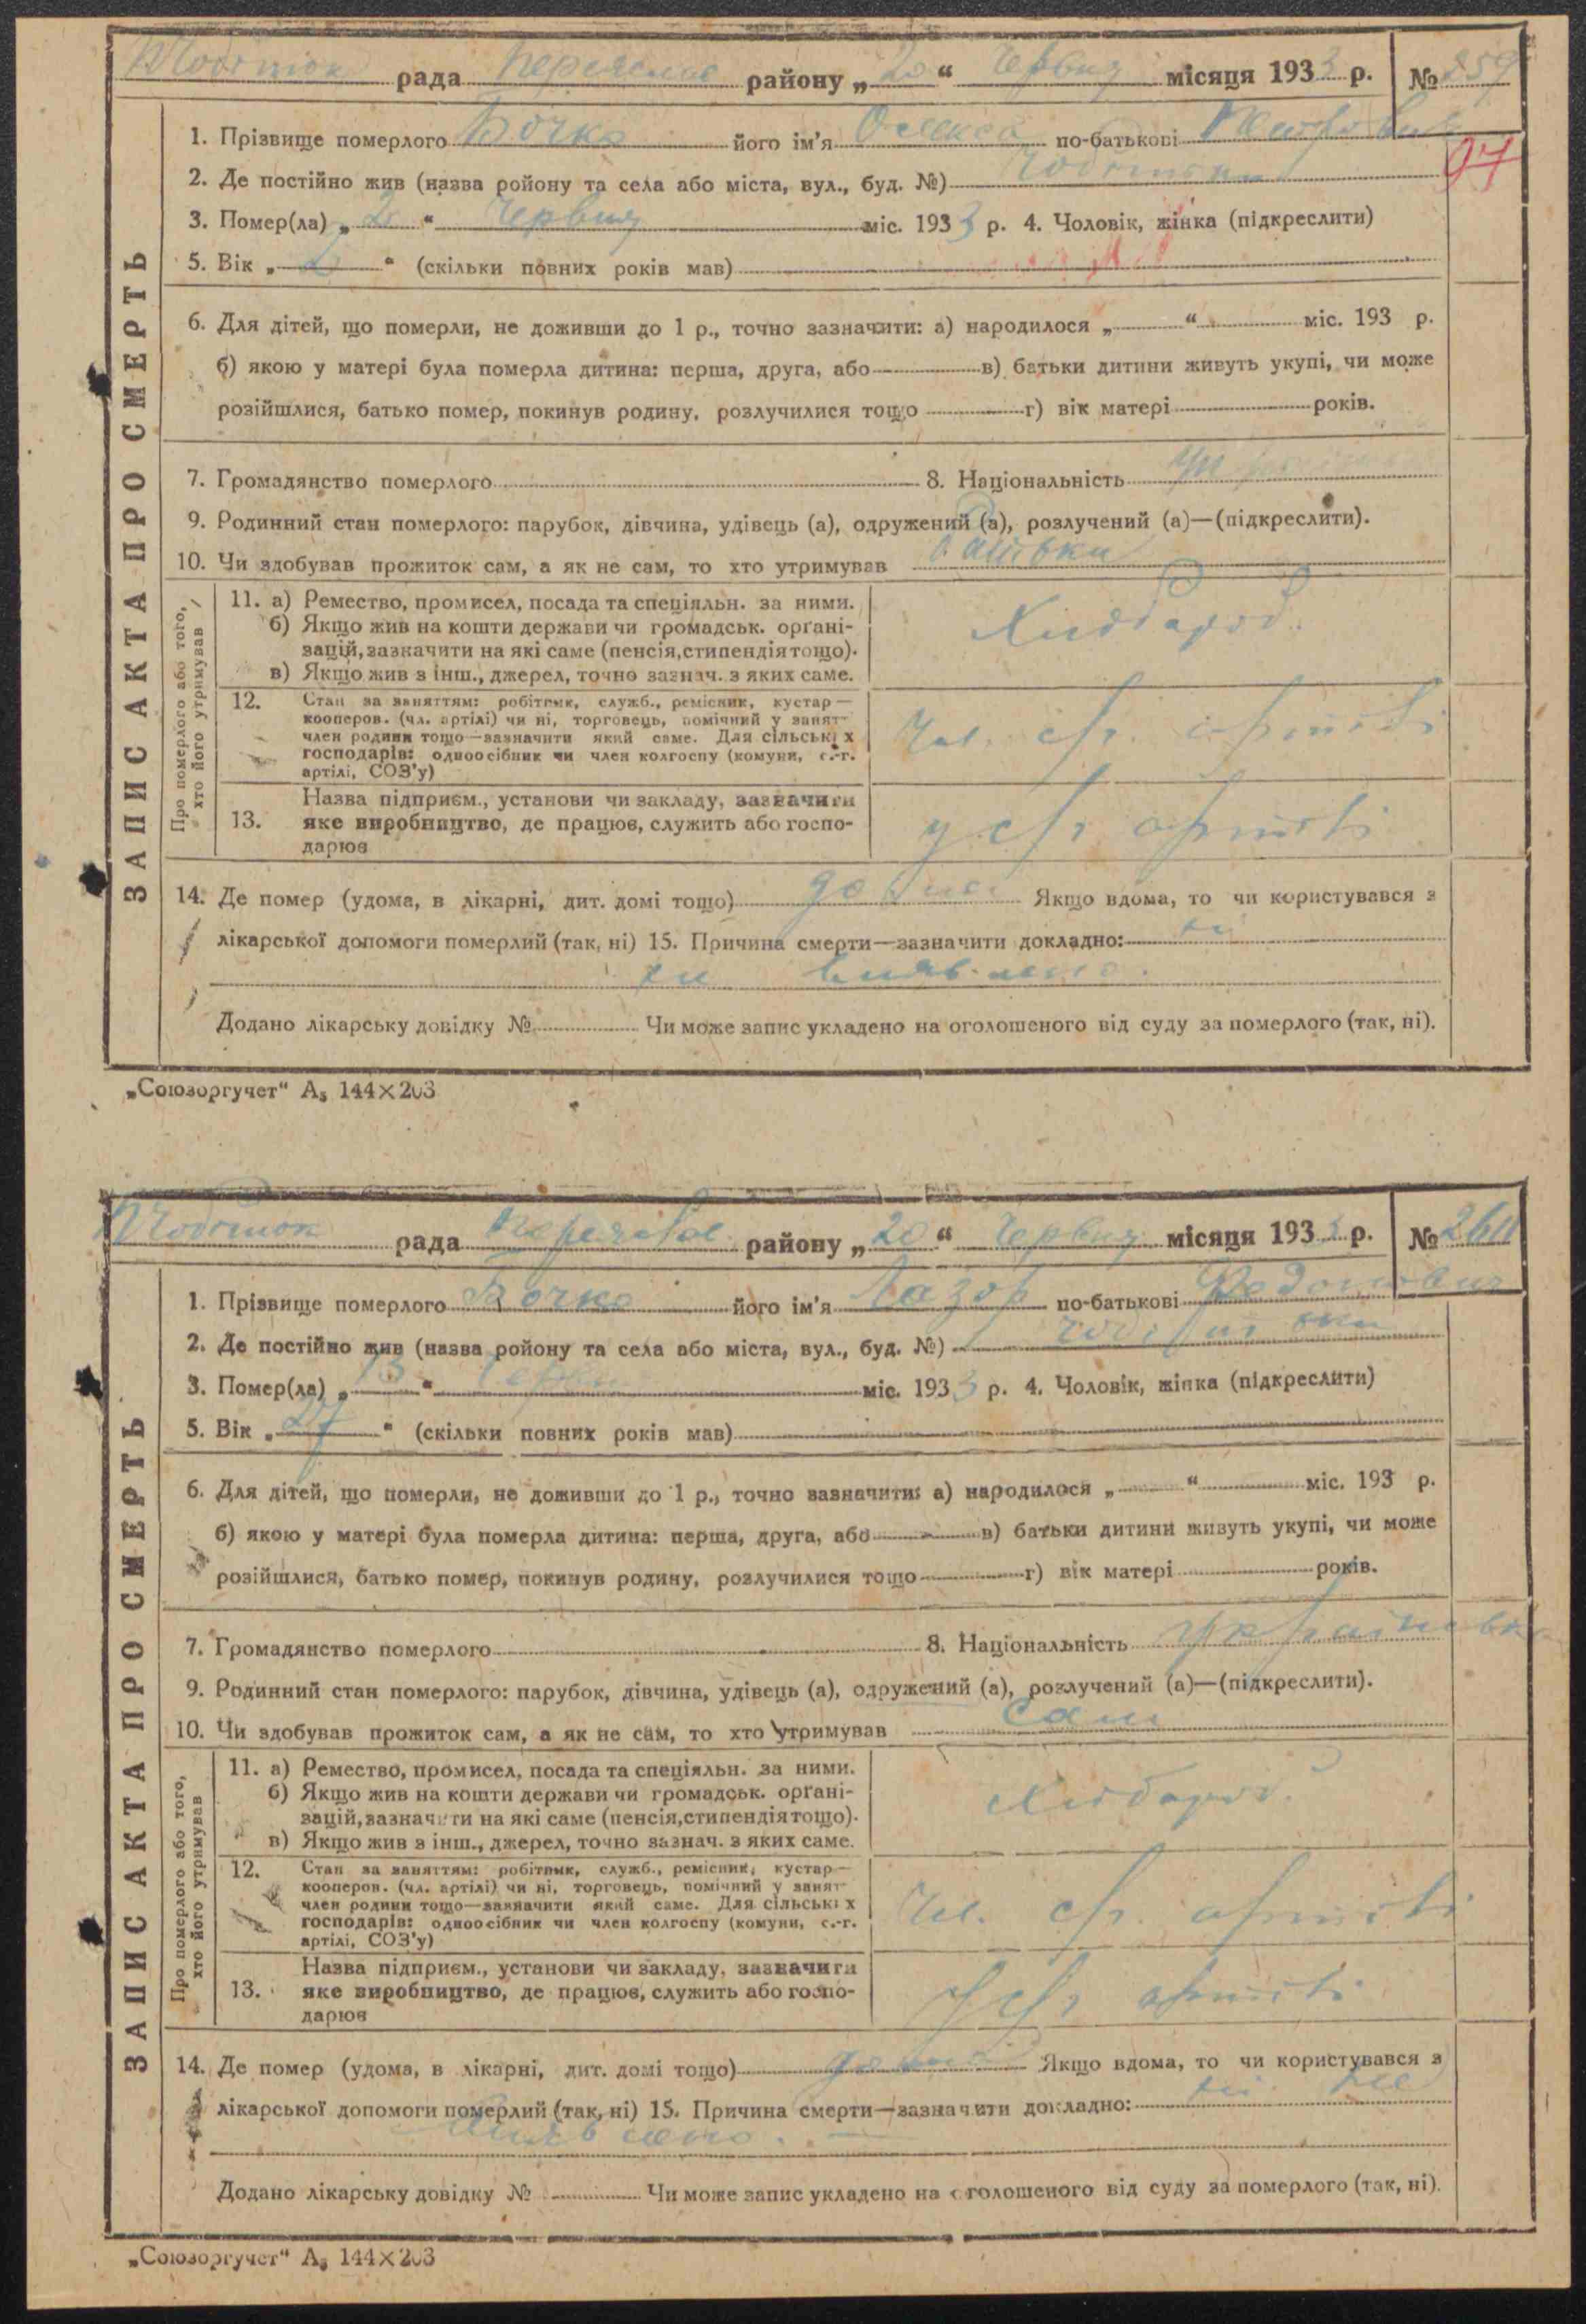 рада Переяслав району „20“ Червня місяця 1933 р. № 259
1. Прізвище померлого Бочко його ім'я Олекса по-батькові
97
2. Де постійно жив (назва ройону та села або міста, вул., буд. №)
3. Помер(ла) „2“ Червня міс. 1933 р. 4. Чоловік, жінка (підкреслити)
5. Вік „2“ (скільки повних років мав)
6. Для дітей, що померли, не доживши до 1 р., точно зазначити: а) народилося „ “ міс. 193 р.
б) якою у матері була померла дитина: перша, друга, або в) батьки дитини живуть укупі, чи може
розійшлися, батько помер, покинув родину, розлучилися тощо г) вік матері років.
7. Громадянство померлого 8. Національність
9. Родинний стан померлого: парубок, дівчина, удівець (а), одружений (а), розлучений (а)—(підкреслити).
10. Чи здобував прожиток сам, а як не сам, то хто утримував батьки
ЗАПИС АКТА ПРО СМЕРТЬ
Про померлого або того, хто його утримував
11. а) Ремество, промисел, посада та спеціяльн. за ними.
б) Якщо жив на кошти держави чи громадськ. орґані-
зацій, зазначити на які саме (пенсія, стипендія тощо).
в) Якщо жив з інш., джерел, точно зазнач. з яких саме.
Хлібороб.
12. Стан за заняттям: робітник, служб., ремісник, кустар—
кооперов. (чл. артілі) чи ні, торговець, помічний у занят-
член родини тощо—зазначити який саме. Для сільських
господарів: одноосібник чи член колгоспу (комуни, с.-г.
артілі, СОЗ'у)
Чл. с/г. артілі
13. Назва підприєм., установи чи закладу, зазначити
яке виробництво, де працює, служить або госпо-
дарює
у с/г артілі
14. Де помер (удома, в лікарні, дит. домі тощо) дома Якщо вдома, то чи користувався з
лікарської допомоги померлий (так, ні) 15. Причина смерти—зазначити докладно: ні
не виявлено.
Додано лікарську довідку № Чи може запис укладено на оголошеного від суду за померлого (так, ні).
„Союзоргучет“ А₅ 144×203
рада Переяслав району „20“ Червня місяця 1933 р. № 260
1. Прізвище померлого Бочко його ім'я Лазор по-батькові Федотович
2. Де постійно жив (назва ройону та села або міста, вул., буд. №)
3. Помер(ла) „13“ Червня міс. 1933 р. 4. Чоловік, жінка (підкреслити)
5. Вік „27“ (скільки повних років мав)
6. Для дітей, що померли, не доживши до 1 р., точно зазначити: а) народилося „ “ міс. 193 р.
б) якою у матері була померла дитина: перша, друга, або в) батьки дитини живуть укупі, чи може
розійшлися, батько помер, покинув родину, розлучилися тощо г) вік матері років.
7. Громадянство померлого 8. Національність
9. Родинний стан померлого: парубок, дівчина, удівець (а), одружений (а), розлучений (а)—(підкреслити).
10. Чи здобував прожиток сам, а як не сам, то хто утримував сам
ЗАПИС АКТА ПРО СМЕРТЬ
Про померлого або того, хто його утримував
11. а) Ремество, промисел, посада та спеціяльн. за ними.
б) Якщо жив на кошти держави чи громадськ. орґані-
зацій, зазначити на які саме (пенсія, стипендія тощо).
в) Якщо жив з інш., джерел, точно зазнач. з яких саме.
Хлібороб.
12. Стан за заняттям: робітник, служб., ремісник, кустар—
кооперов. (чл. артілі) чи ні, торговець, помічний у занят-
член родини тощо—зазначити який саме. Для сільських
господарів: одноосібник чи член колгоспу (комуни, с.-г.
артілі, СОЗ'у)
Чл. с/г. артілі
13. Назва підприєм., установи чи закладу, зазначити
яке виробництво, де працює, служить або госпо-
дарює
У с/г артілі
14. Де помер (удома, в лікарні, дит. домі тощо) дома Якщо вдома, то чи користувався з
лікарської допомоги померлий (так, ні) 15. Причина смерти—зазначити докладно: ні не
виявлено.
Додано лікарську довідку № Чи може запис укладено на оголошеного від суду за померлого (так, ні).
„Союзоргучет“ А₅ 144×203